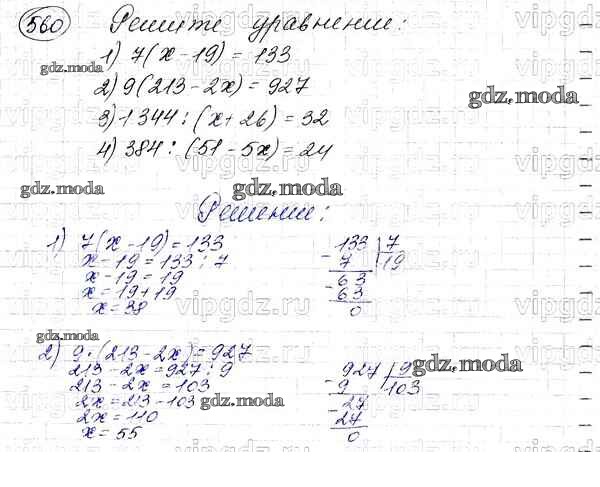 560 Решите уравнение:
1) 7(x - 19) = 133
2) 9(213 - 2x) = 927
3) 1344 : (x + 26) = 32
4) 384 : (51 - 5x) = 24
Решение:
1) 7(x - 19) = 133
x - 19 = 133 : 7
x - 19 = 19
x = 19 + 19
x = 38
133 | 7
- 7 | 19
63
- 63
0
2) 9·(213 - 2x) = 927
213 - 2x = 927 : 9
213 - 2x = 103
2x = 213 - 103
2x = 110
x = 55
927 | 9
- 9 | 103
27
- 27
0
gdz.moda
gdz.moda
gdz.moda
gdz.moda
gdz.moda
gdz.moda
gdz.moda
vipgdz.ru